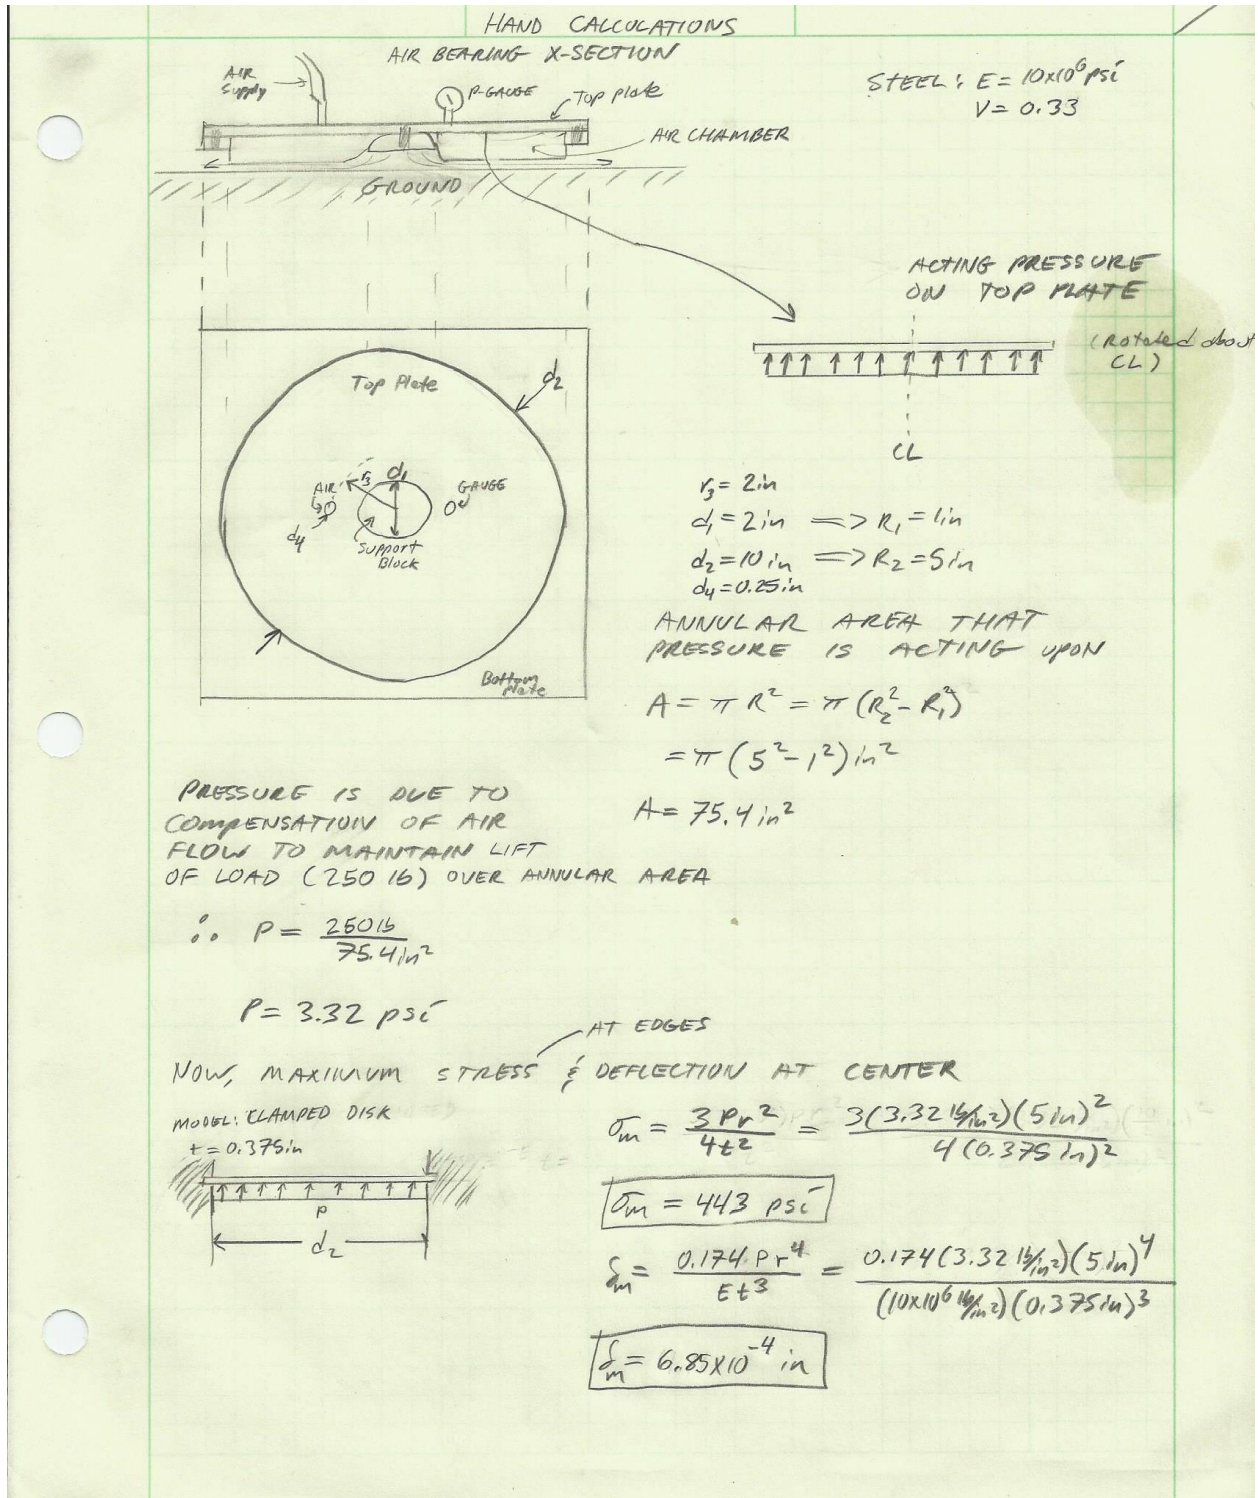 HAND CALCULATIONS
AIR BEARING X-SECTION
AIR
Supply
P-GAUGE
Top plate
AIR CHAMBER
GROUND
STEEL: E = 10x10⁶ psi
V = 0.33
ACTING PRESSURE
ON TOP PLATE
(Rotated about
CL)
CL
Top Plate
d₂
r₃
d₁
AIR
GAUGE
d₄
Support
Block
Bottom
plate
r₃ = 2in
d₁ = 2in => R₁ = 1in
d₂ = 10in => R₂ = 5in
d₄ = 0.25in
ANNULAR AREA THAT
PRESSURE IS ACTING UPON
A = π R² = π (R₂² - R₁²)
= π (5² - 1²) in²
A = 75.4 in²
PRESSURE IS DUE TO
COMPENSATION OF AIR
FLOW TO MAINTAIN LIFT
OF LOAD (250 lb) OVER ANNULAR AREA
∴ P = 250 lb / 75.4 in²
P = 3.32 psi
AT EDGES
NOW, MAXIMUM STRESS & DEFLECTION AT CENTER
MODEL: CLAMPED DISK
t = 0.375in
P
d₂
σm = 3 Pr² / 4t² = 3(3.32 lb/in²)(5in)² / 4(0.375 in)²
σm = 443 psi
δm = 0.174 Pr⁴ / Et³ = 0.174(3.32 lb/in²)(5in)⁴ / (10x10⁶ lb/in²)(0.375in)³
δm = 6.85x10⁻⁴ in